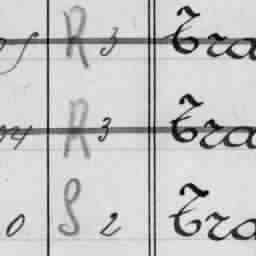 R 3 Tra
R 3 Tra
0 S 2 Tra